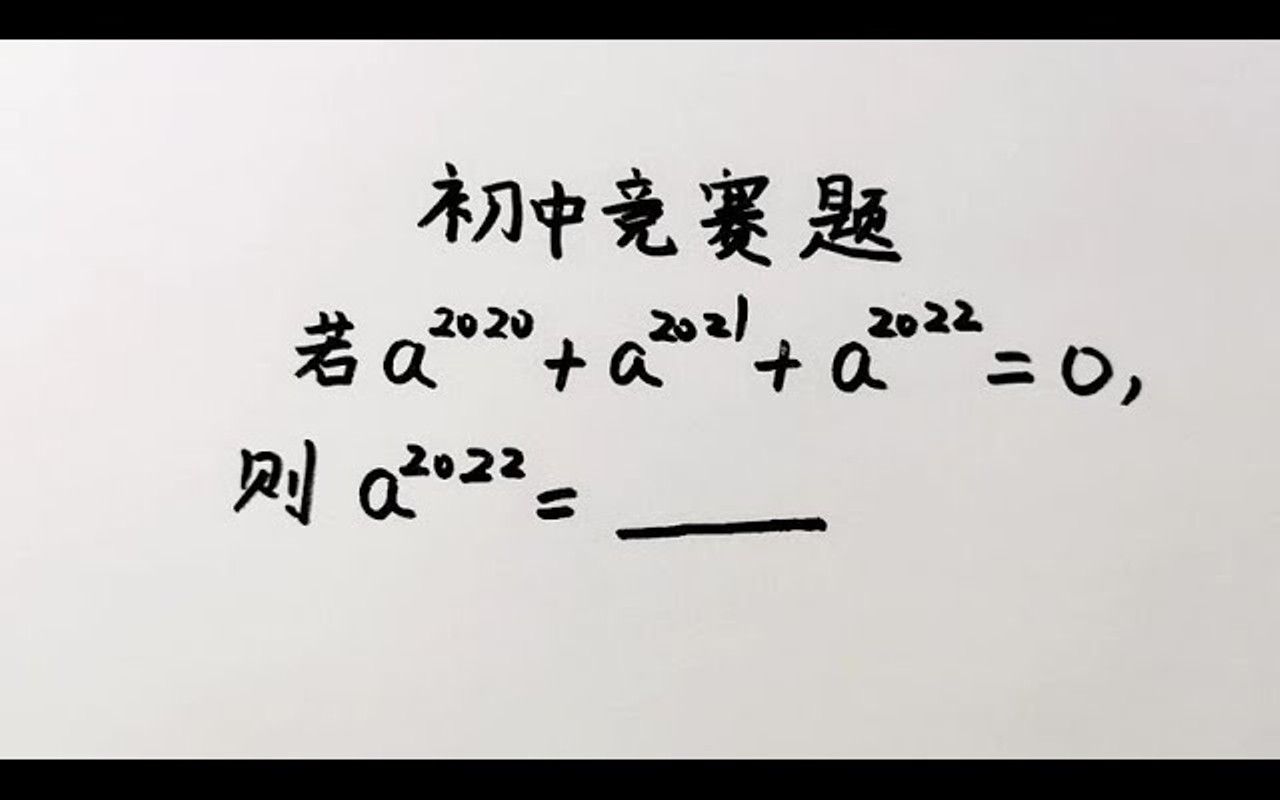 初中竞赛题
若 a²⁰²⁰ + a²⁰²¹ + a²⁰²² = 0,
则 a²⁰²² = ____